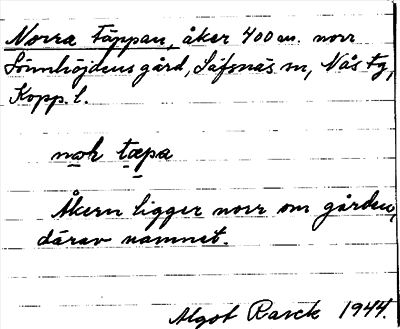 Norra Täppan, åker 400 m. norr
Sönnhöjdens gård, Säfsnäs sn, Nås tg,
Kopp. l.
nɔh tæpa
Åkern ligger norr om gården,
därav namnet.
Algot Rasck 1944.